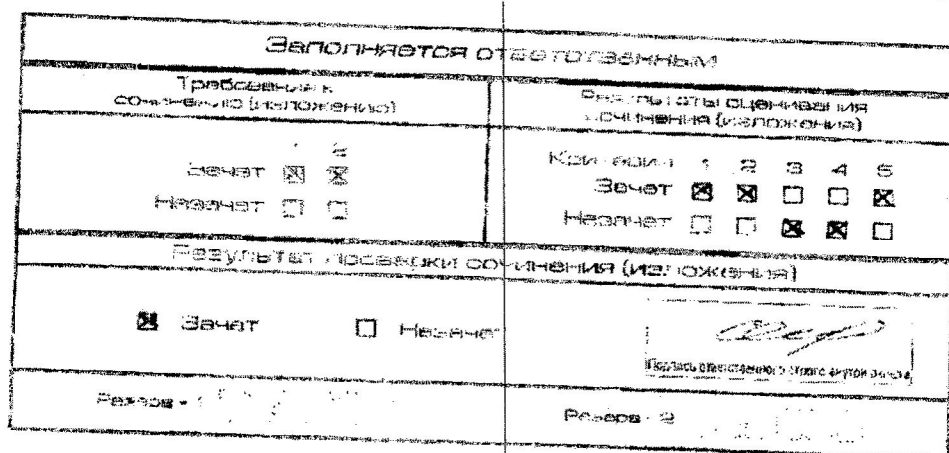 Заполняется ответственным
Требования к
сочинению (изложению)
1 2
Зачет
Незачет
Результаты оценивания
сочинения (изложения)
Критерии 1 2 3 4 5
Зачет
Незачет
Результат проверки сочинения (изложения)
Зачет
Незачет
Подпись ответственного строго внутри окошка
Резерв - 1
Резерв - 2